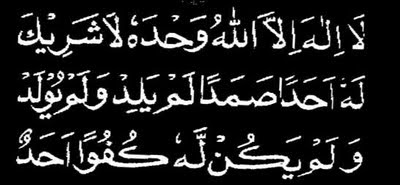 لَا اِلٰهَ اِلَّا اللهُ وَحْدَهٗ لَا شَرِيْكَ
لَهٗ اَحَدًا صَمَدًا لَمْ يَلِدْ وَلَمْ يُوْلَدْ
وَلَمْ يَكُنْ لَّهٗ كُفُوًا اَحَدٌ